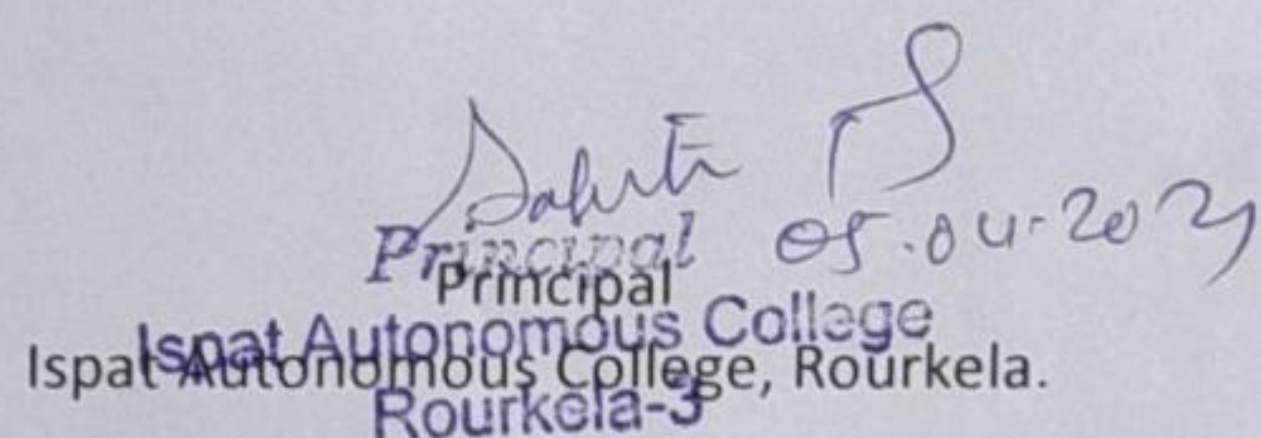 05.04.2021
Principal
Principal
Ispat Autonomous College
Ispat Autonomous College, Rourkela.
Rourkela-3